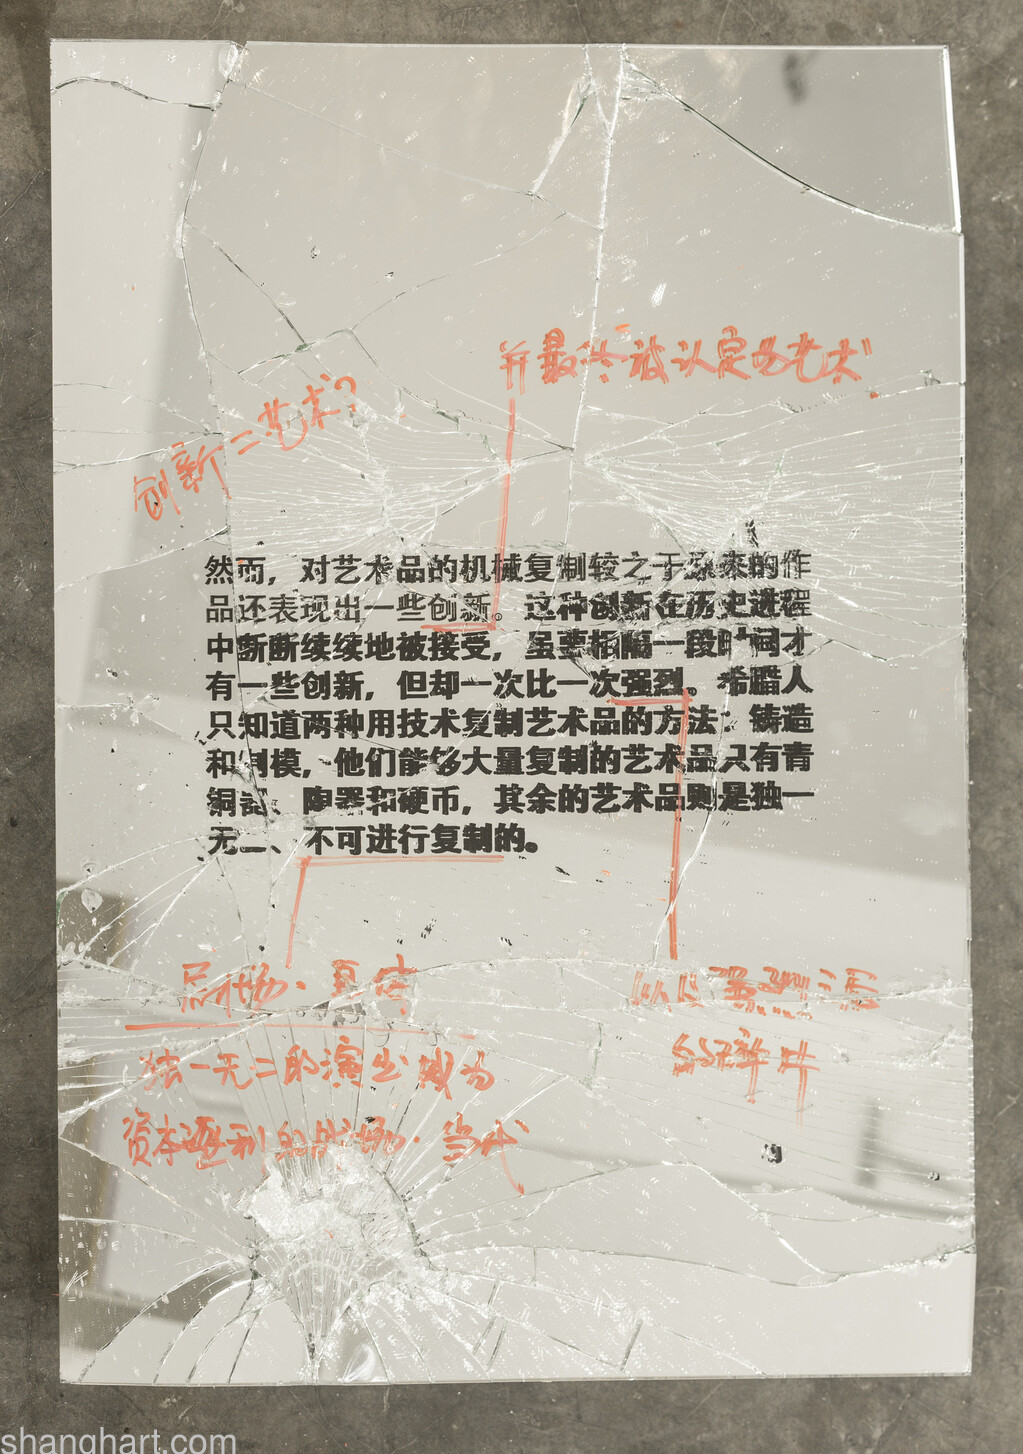 并最终被认定为艺术
创新=艺术?
然而，对艺术品的机械复制较之于原来的作
品还表现出一些创新。这种创新在历史进程
中断断续续地被接受，虽要相隔一段时间才
有一些创新，但却一次比一次强烈。希腊人
只知道两种用技术复制艺术品的方法：铸造
和制模，他们能够大量复制的艺术品只有青
铜器、陶器和硬币，其余的艺术品则是独一
无二、不可进行复制的。
独一无二的演出成为
资本逐利的战场·当代
shanghart.com